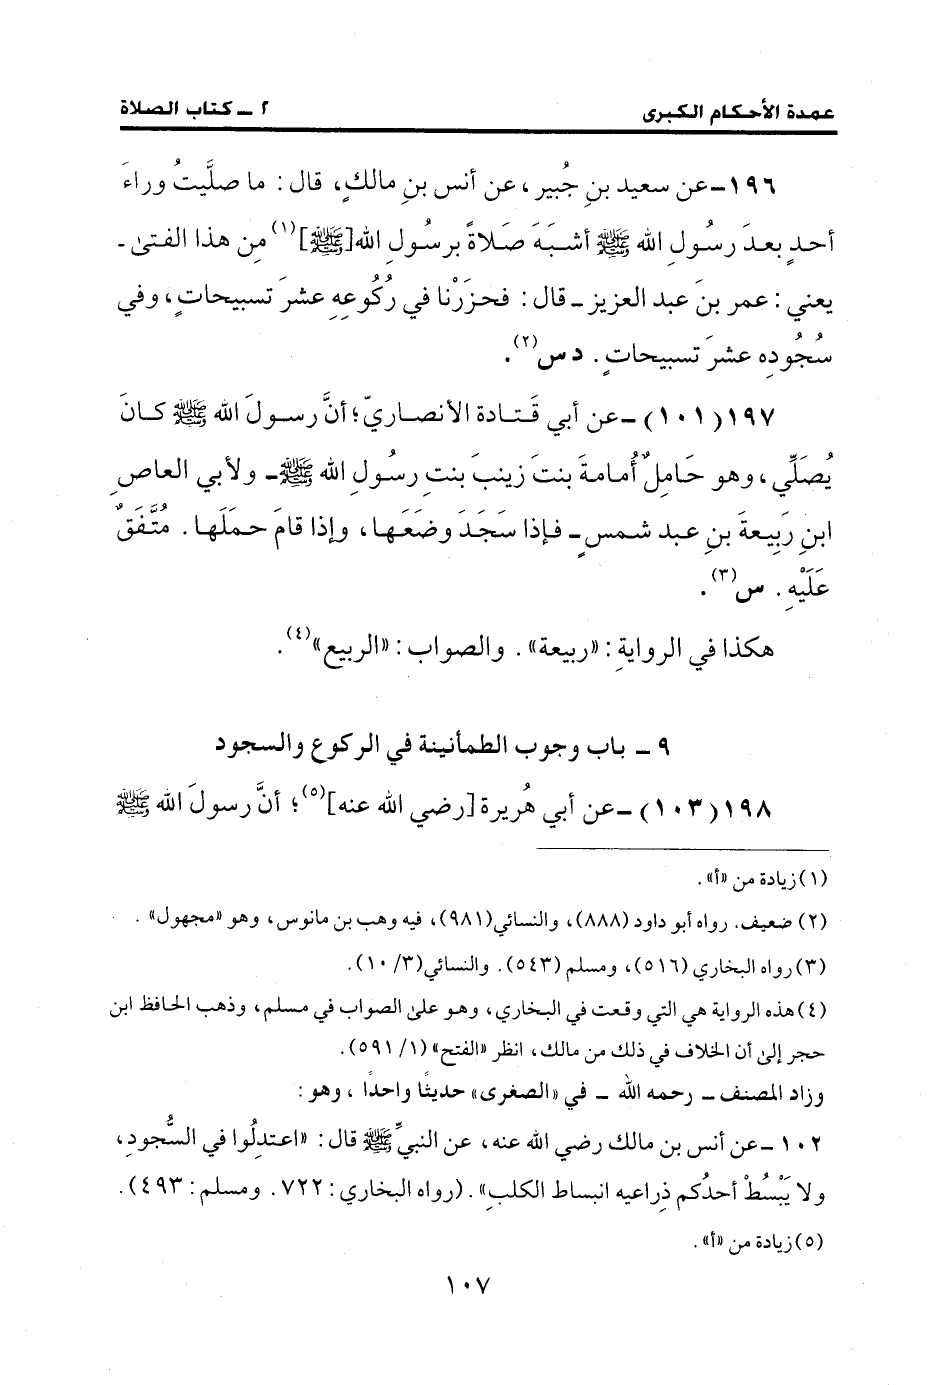 عمدة الأحكام الكبرى ٢ ــ كتاب الصلاة
١٩٦ــ عن سعيد بنِ جُبير، عن أنس بنِ مالكٍ، قال: ما صلَّيتُ وراءَ
أحدٍ بعدَ رسُولِ الله ﷺ أشبَهَ صَلاةً برسُولِ الله[ﷺ](١) مِن هذا الفتىٰ ــ
يعني: عمر بنَ عبد العزيز ــ قال: فحزَرْنا في رُكُوعِهِ عشرَ تسبيحاتٍ، وفي
سُجُودِه عشرَ تسبيحاتٍ. د س(٢).
١٩٧(١٠١)ــ عن أبي قَتادة الأنصاريّ؛ أنَّ رسولَ الله ﷺ كانَ
يُصَلِّي، وهو حَامِلٌ أُمامةَ بنتَ زينبَ بنتِ رسُولِ الله ﷺ ــ ولأبي العاصِ
ابنِ رَبِيعةَ بنِ عبد شمسٍ ــ فإذا سَجَدَ وضَعَها، وإذا قامَ حمَلَها. مُتَّفَقٌ
عَلَيْهِ. س(٣).
هكذا في الروايةِ: «ربيعة». والصواب: «الربيع»(٤).
٩ ــ باب وجوب الطمأنينة في الركوع والسجود
١٩٨(١٠٣)ــ عن أبي هُريرة [رضي الله عنه](٥)؛ أنَّ رسولَ الله ﷺ
(١) زيادة من «أ».
(٢) ضعيف. رواه أبو داود (٨٨٨)، والنسائي (٩٨١)، فيه وهب بن مانوس، وهو «مجهول».
(٣) رواه البخاري (٥١٦)، ومسلم (٥٤٣). والنسائي (٣/ ١٠).
(٤) هذه الرواية هي التي وقعت في البخاري، وهو علىٰ الصواب في مسلم، وذهب الحافظ ابن
حجر إلىٰ أن الخلاف في ذلك من مالك، انظر «الفتح» (١/ ٥٩١).
وزاد المصنف ــ رحمه الله ــ في «الصغرى» حديثًا واحدًا، وهو:
١٠٢ ــ عن أنس بن مالك رضي الله عنه، عن النبيِّ ﷺ قال: «اعتدِلُوا في السُّجودِ،
ولا يَبْسُطْ أحدُكم ذِراعيه انبساط الكلبِ». (رواه البخاري: ٧٢٢. ومسلم: ٤٩٣).
(٥) زيادة من «أ».
١٠٧